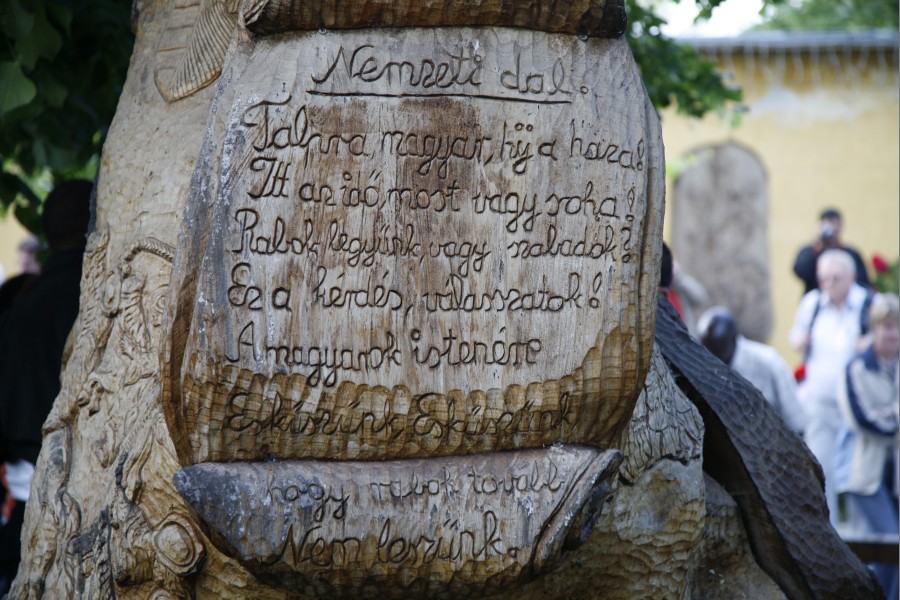 Nemzeti dal.
Talpra magyar, hij a haza!
Itt az idő, most vagy soha!
Rabok legyünk, vagy szabadok?
Ez a kérdés, válasszatok!
A magyarok istenére
Esküszünk, Esküszünk,
hogy rabok tovább
Nem leszünk.